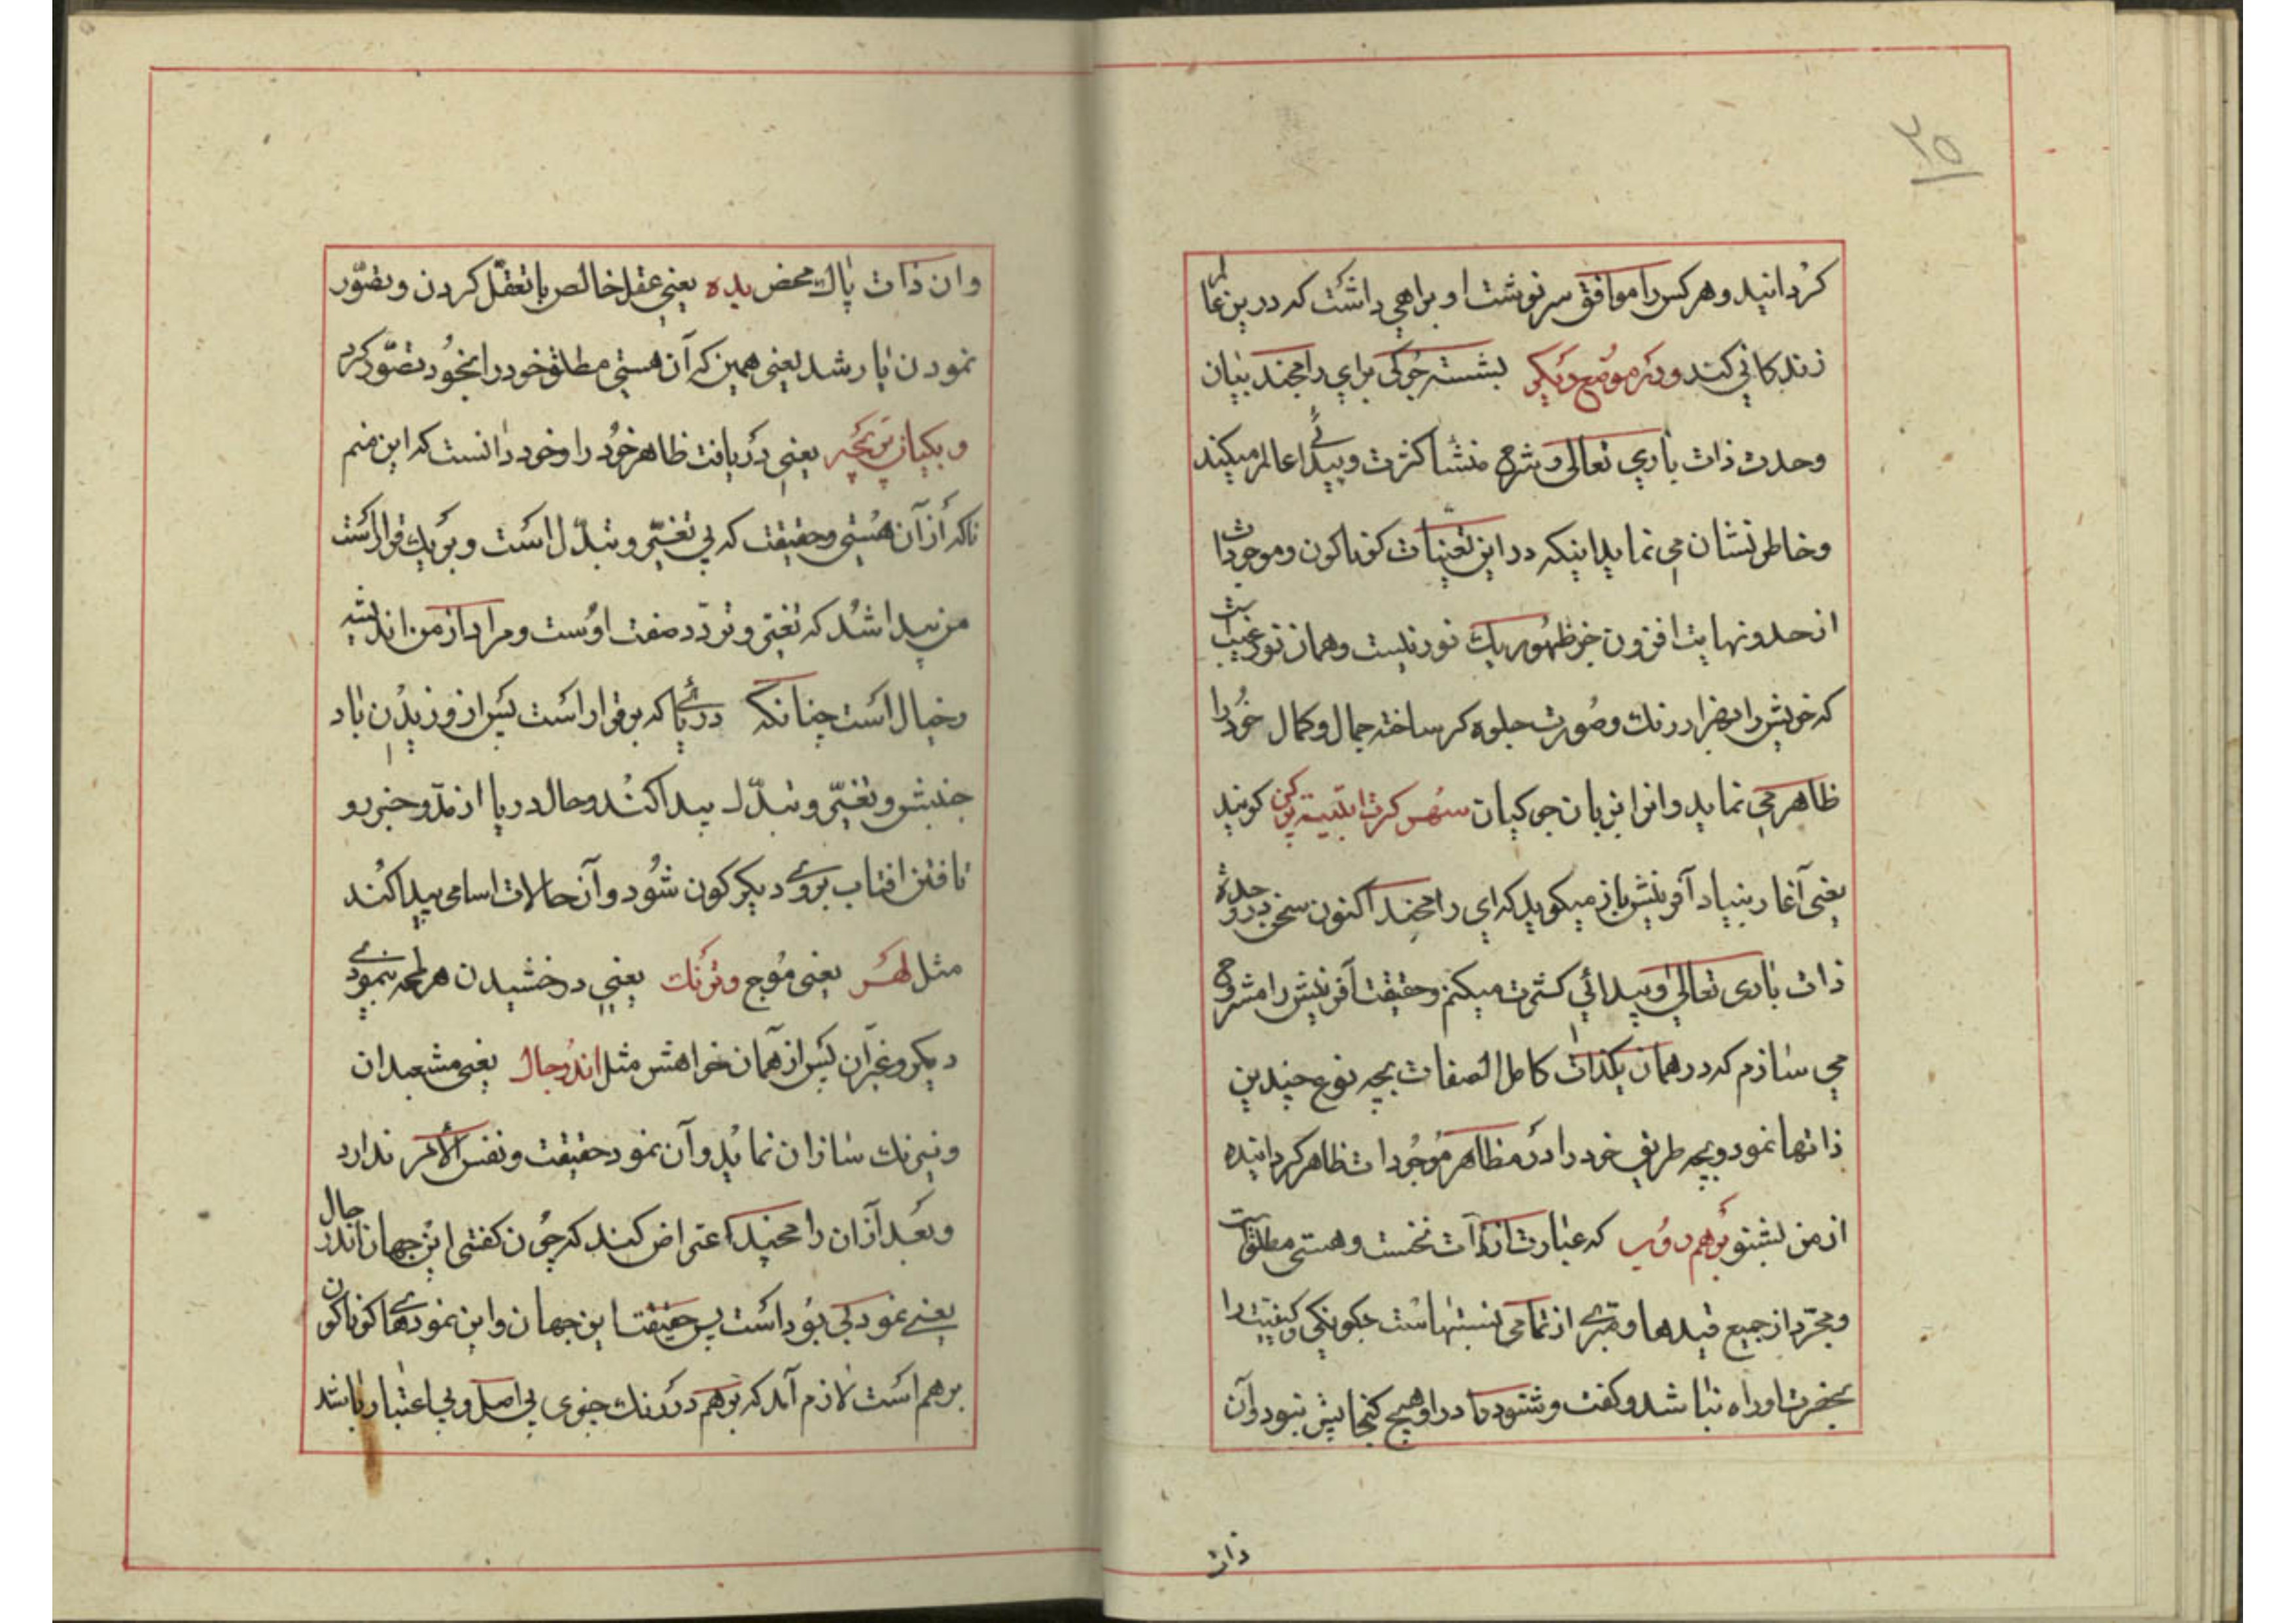 ۲۵
کردانید وهر کس را موافق سرنوشت او براهی داشت که درین عالم
زندکانی کنند ودر موضع دیکر بشسته جوکی برای رامچند بیان
وحدت ذات باری تعالی وشرح منشا کثرت وپیدائی عالم میکند
وخاطر نشان می نماید اینکه در این تعینات کوناکون وموجودات
از حد ونهایت افزون جز ظهور یک نور نیست وهمان نور غیب است
که خویش را بهزار رنک وصورت جلوه کر ساخته جمال وکمال خود را
ظاهر می نماید وانرا بزبان جوکیان سهس کرت اتپیته پرکن کویند
یعنی آغاز بنیاد آفرینش باز میکوید که ای رامچند اکنون سخن در وحدة
ذات باری تعالی وپیدائی کثرت میکنم وحقیقت آفرینش را مشروح
می سازم که در همان یکذات کامل الصفات بچه نوع چندین
ذاتها نمود وبچه طریق خود را در مظاهر موجودات ظاهر کردانیده
از من بشنو برهم روپ که عبارت از ذات نخست وهستی مطلق است
ومجرد از جمیع قیدها ومبرے از تمامی نسبتهاست چکونکی وکیفیت را
بحضرت او راه نباشد وکفت وشنود را در او هیچ کنجایش نبود وآن
ذات
وان ذات پاک محض بده یعنی عقل خالص با تعقل کردن وتصور
نمودن یار شد یعنی همین که آن هستی مطلق خود را بخود تصور کرد
وبکیان پریچه یعنی دریافت ظاهر خود را وخود دانست که این منم
ناکه از آن هستی وحقیقت که بی تغیر وتبدل است وبر یک قرار است
من پیدا شد که تغیر وتردد صفت اوست ومراد از من اندیشه
وخیال است چنانکه دریائے که برقرار است پس از وزیدن باد
جنبش وتغیر وتبدل پیدا کند وحال دریا از مد وجزر و
تافتن افتاب بروے دیکر کون شود وآن حالات اسامی پیدا کند
مثل لهر یعنی موج وترنک یعنی درخشیدن هر لمحه بنمودے
دیکر وغیر آن پس از همان خواهش مثل اندرجال یعنی مشعبدان
ونیرنک سازان نماید وآن نمود حقیقت ونفس الامر ندارد
وبعد از آن رامچند اعتراض کند که چون کفتی این جهان اندرجال
یعنے نمود بی بود است پس حقیقت این جهان واین نمودےها کوناکون
برهم است لازم آمد که برهم در رنک چیزی بی اصل وبی اعتبار باشد